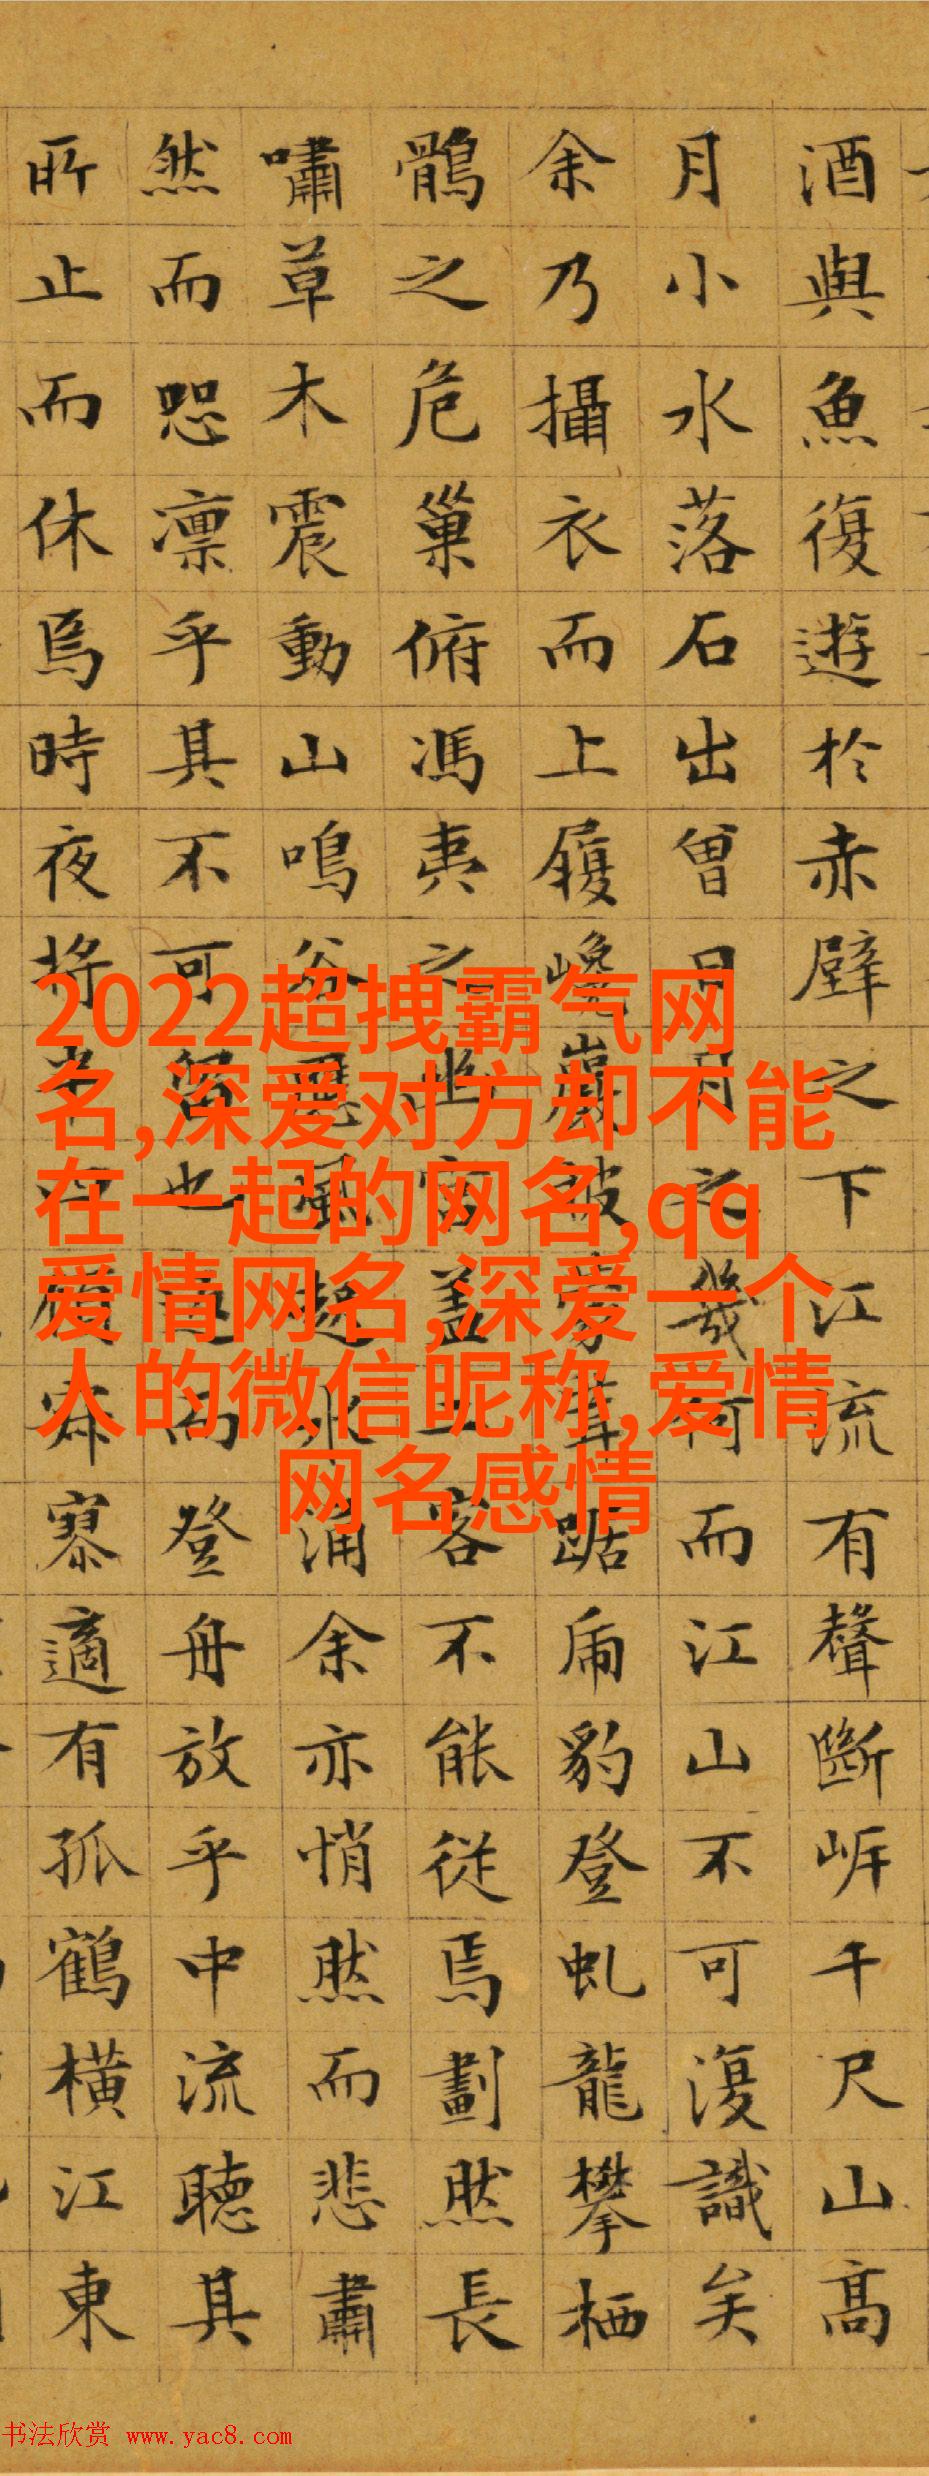 酒與魚復遊於赤壁之下江流有聲斷岸千尺山高
月小水落石出曾日月之幾何而江山不可復識矣
余乃攝衣而上履巉巖披蒙茸踞虎豹登虬龍攀栖
鶻之危巢俯馮夷之幽宮蓋二客不能從焉劃然長
嘯草木震動山鳴谷應風起水涌余亦悄然而悲肅
然而恐凛乎其不可留也返而登舟放乎中流聽其
所止而休焉時夜將半四顧寂寥適有孤鶴橫江東
2022超拽霸气网
名,深爱对方却不能
在一起的网名,qq
爱情网名,深爱一个
人的微信昵称,爱情
网名感情
书法欣赏 www.yac8.com